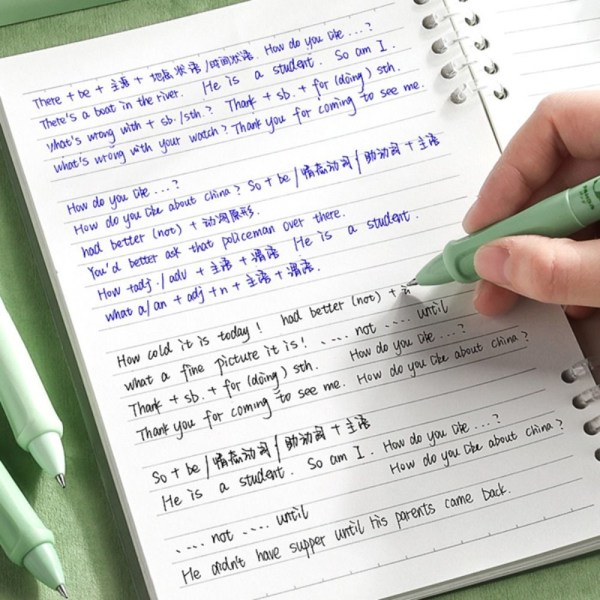 There + be + 主语 + 地点状语/时间状语. How do you like ...?
There's a boat in the river. He is a student. So am I.
What's wrong with + sb/sth.? Thank + sb. + for (doing) sth.
What's wrong with your watch? Thank you for coming to see me.
How do you like ...?
How do you like about china? So + be /情态动词/助动词 + 主语
had better (not) + 动词原形.
You'd better ask that policeman over there.
How +adj./adv + 主语 + 谓语 He is a student.
what a/an + adj +n + 主语 + 谓语.
How cold it is today! had better (not) +
what a fine picture it is! .... not .... until
Thank + sb. + for (doing) sth. How do you like ...?
Thank you for coming to see me. How do you like about china?
So + be /情态动词/助动词 + 主语
He is a student. So am I. How do you like ...?
How do you like about china?
.... not .... until
He didn't have supper until his parents came back.